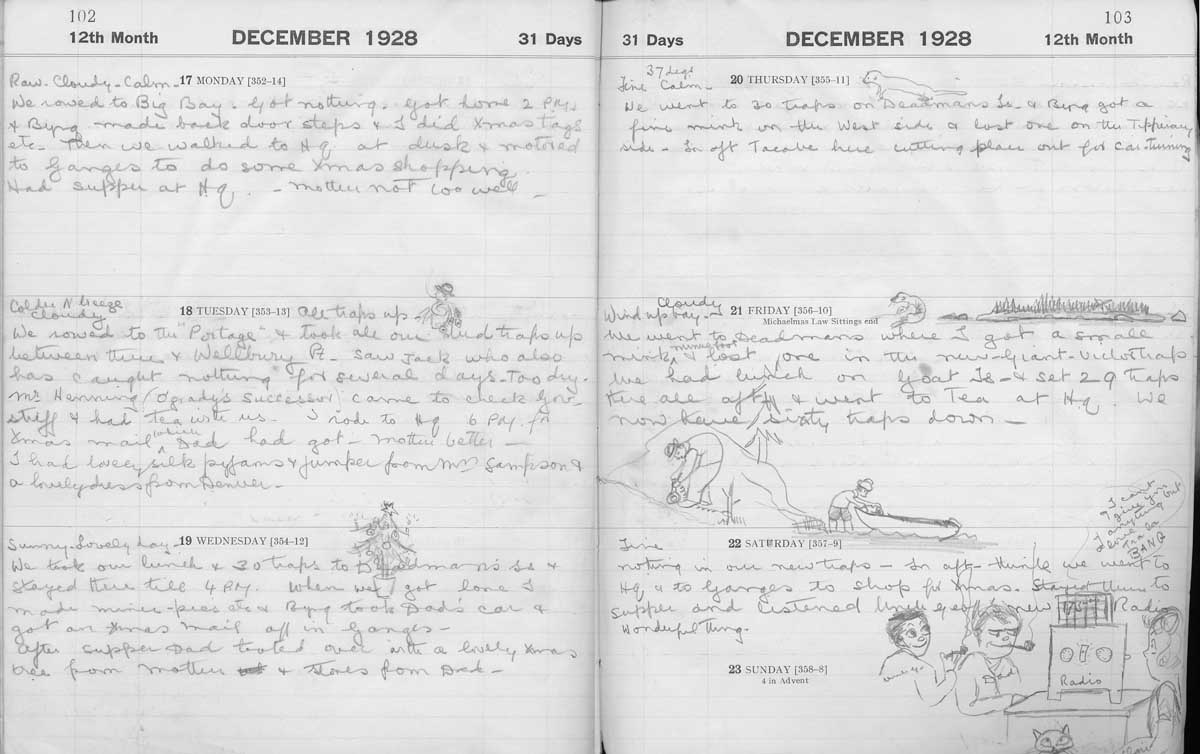 102
12th Month DECEMBER 1928 31 Days
Raw. Cloudy. Calm. 17 MONDAY [352-14]
We rowed to Big Bay. Got nothing. Got home 2 P.M.
& Byng made back door steps & I did Xmas tags
etc. Then we walked to Hq. at dusk & motored
to Ganges to do some Xmas shopping.
Had supper at Hq. - Mother not too well -
Colder N breeze
Cloudy 18 TUESDAY [353-13] All traps up -
We rowed to the "Portage" & took all our traps up
between there & Wellbury B. saw Jack who also
has caught nothing for several days. Too dry.
Mr Henning (Ogrady's successor) came to check
stuff & had tea with us. I rode to Hq 6 P.M. for
Xmas mail which Dad had got - Mother better -
I had lovely silk pyjams & jumper from Mrs Sampson &
a lovely dress from Denver -
Sunny. Lovely day. 19 WEDNESDAY [354-12]
We took our lunch & 30 traps to Deadman's Is &
stayed there till 4 P.M. When we got home I
made mince-pies etc & Byng took Dad's car &
got our Xmas mail off in Ganges -
After supper Dad tooted over with a lovely Xmas
tree from Mother & stores from Dad -
103
31 Days DECEMBER 1928 12th Month
37 degs
Fine Calm - 20 THURSDAY [355-11]
We went to 30 traps on Deadmans Is - & Byng got a
fine mink on the West side & lost one on the Tipperary
side - In aft Tacabe here cutting place out for car-turning
Cloudy
Wind up bay - 21 FRIDAY [356-10]
Michaelmas Law Sittings end
We went to Deadmans where I got a small
mink & lost one in the new-giant-Victor trap
We had lunch on Goat Is - & set 29 traps
there all aft & went to Tea at Hq. We
now have sixty traps down -
Fine 22 SATURDAY [357-9]
nothing in our new traps - In aft - we went to
Hq & to Ganges to shop for Xmas. Stayed there to
supper and listened to new Radio
Wonderful thing.
I can't
give you
anything but
love
Tra la
BANG
23 SUNDAY [358-8]
4 in Advent
Dad
Radio